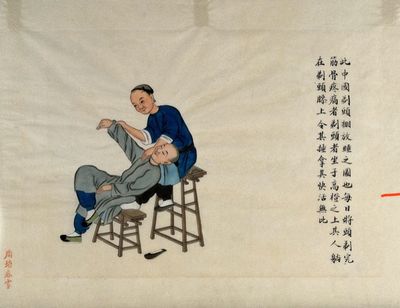 此中國剃頭棚放睡之圖也每日將頭剃完
筋骨疼痛者剃頭者坐于高櫈之上其人躺
在剃頭膝上令其捶拿其快活無比
周培春畫